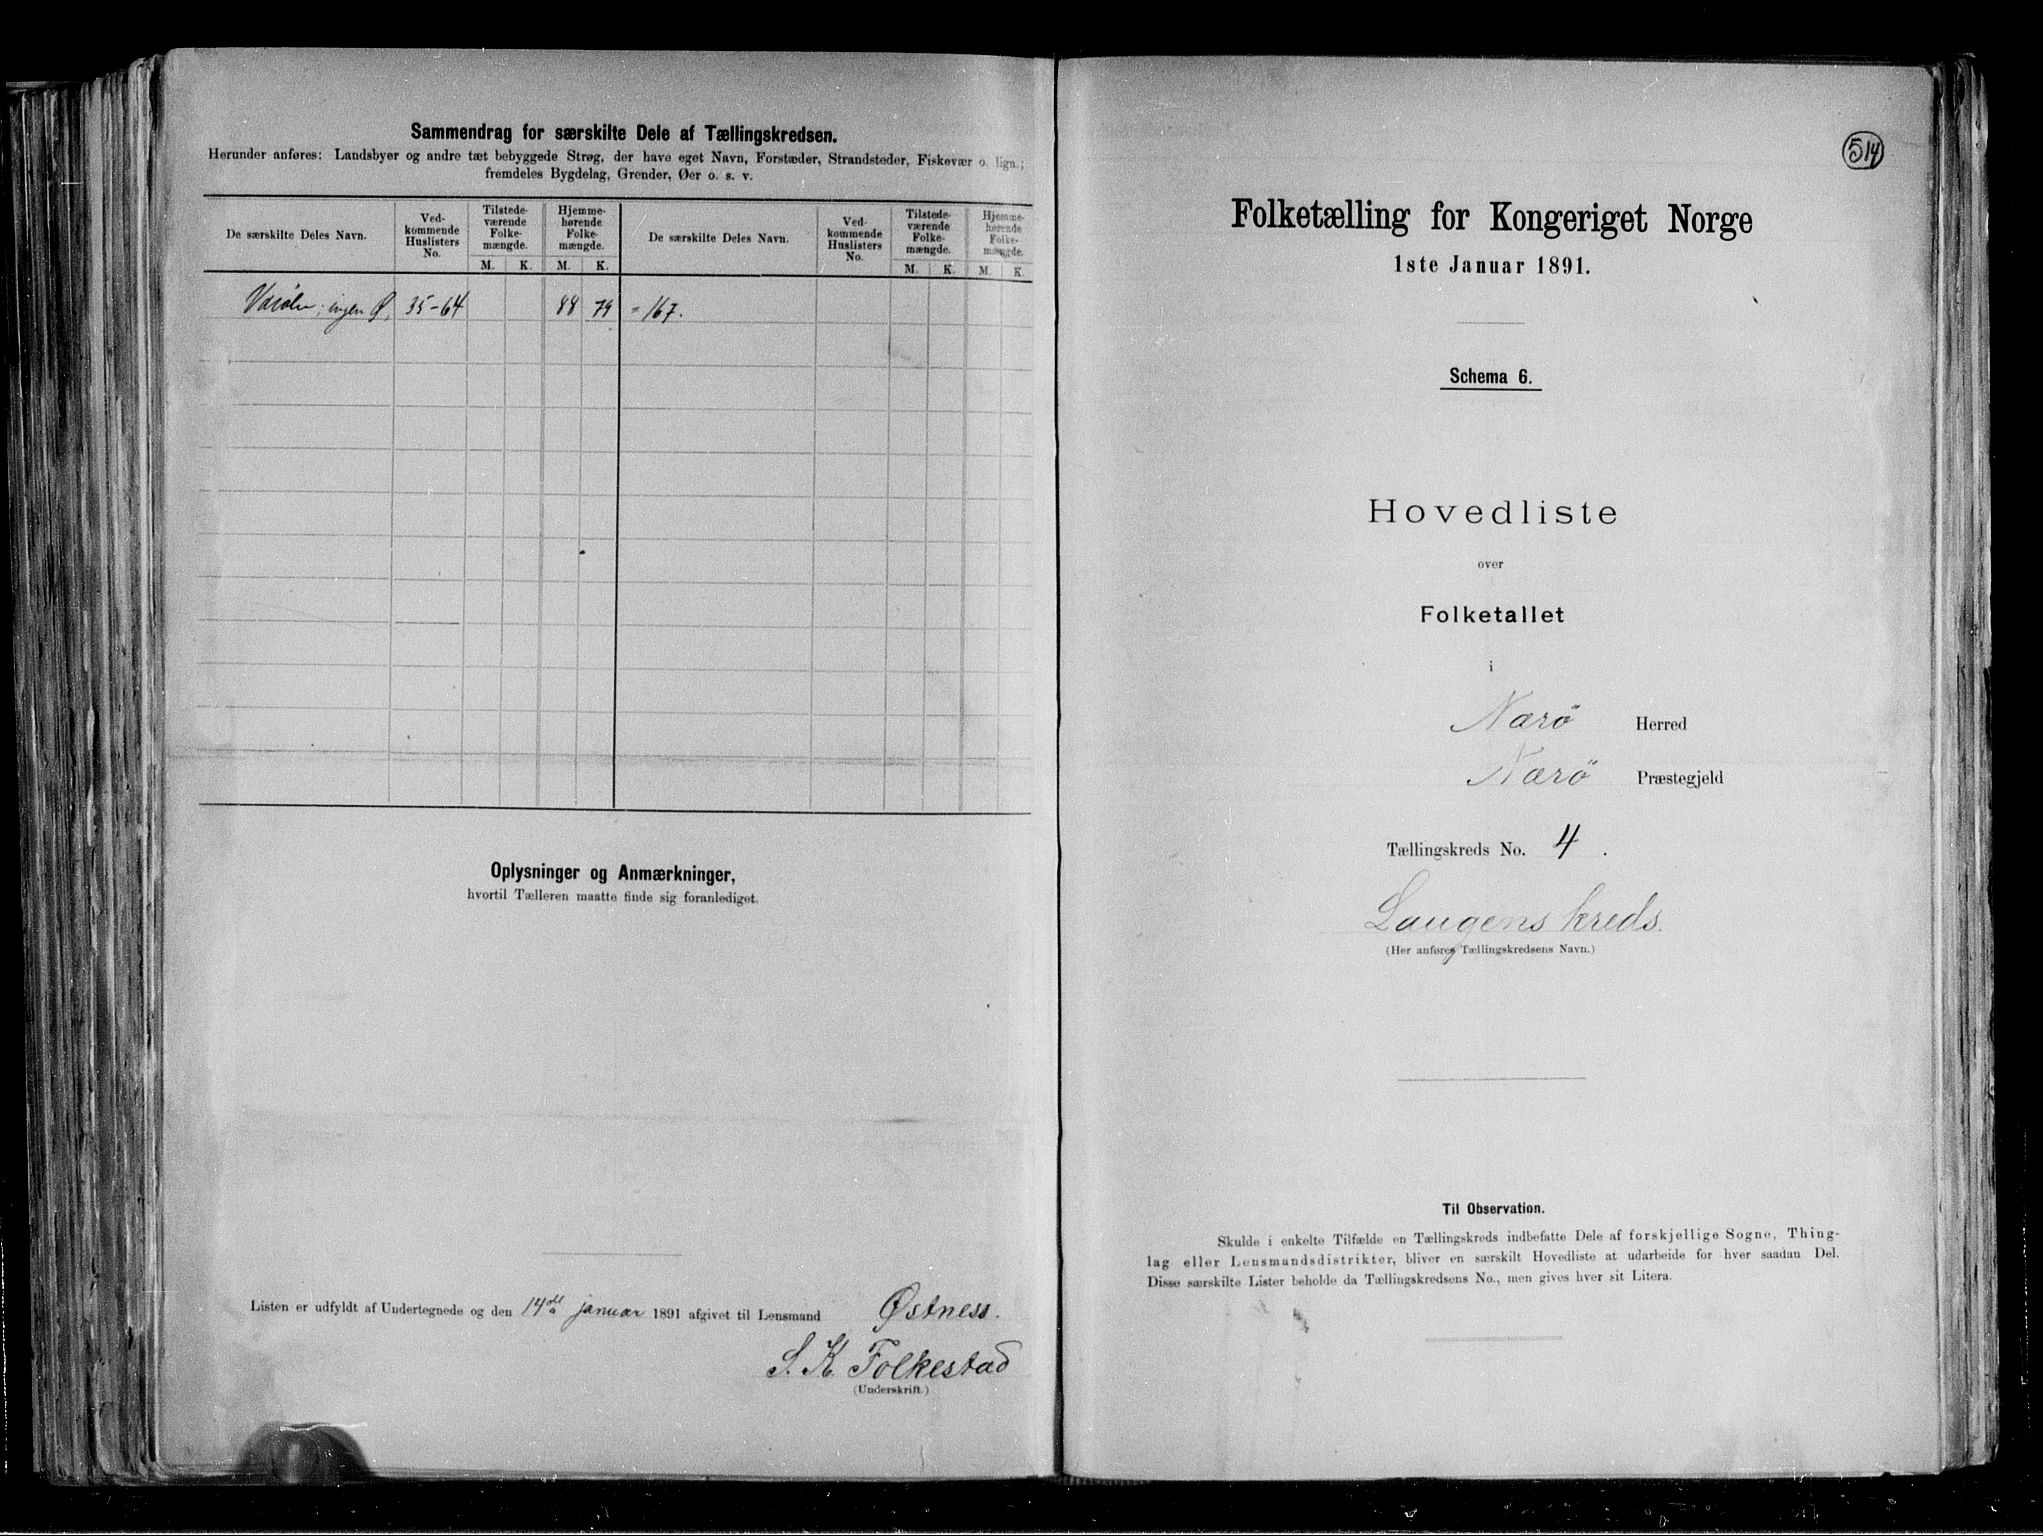 Sammendrag for særskilte Dele af Tællingskredsen.
Herunder anføres: Landsbyer og andre tæt bebyggede Strøg, der have eget Navn, Forstæder, Strandsteder, Fiskevær o. lign.;
fremdeles Bygdelag, Grender, Øer o. s. v.
De særskilte Deles Navn.
Ved-
kommende
Huslisters
No.
Tilstede-
værende
Folke-
mængde.
M. K.
Hjemme-
hørende
Folke-
mængde.
M. K.
De særskilte Deles Navn.
Ved-
kommende
Huslisters
No.
Tilstede-
værende
Folke-
mængde.
M. K.
Hjemme-
hørende
Folke-
mængde.
M. K.
ingen Ø, 35-64 88 79 = 167.
Oplysninger og Anmærkninger,
hvortil Tælleren maatte finde sig foranlediget.
Listen er udfyldt af Undertegnede og den 14de januar 1891 afgivet til Lensmand Østness.
S. K. Folkestad
(Underskrift.)
514
Folketælling for Kongeriget Norge
1ste Januar 1891.
Schema 6.
Hovedliste
over
Folketallet
i
Nærö Herred
Nærö Præstegjeld
Tællingskreds No. 4.
Laugens kreds.
(Her anføres Tællingskredsens Navn.)
Til Observation.
Skulde i enkelte Tilfælde en Tællingskreds indbefatte Dele af forskjellige Sogne, Thing-
lag eller Lensmandsdistrikter, bliver en særskilt Hovedliste at udarbeide for hver saadan Del.
Disse særskilte Lister beholde da Tællingskredsens No., men gives hver sit Litera.